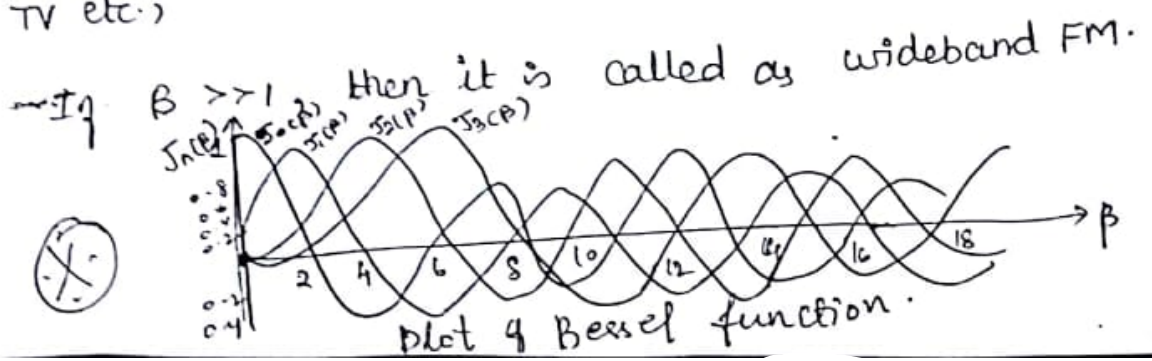 TV etc.,
If β >>1 then it is called as wideband FM.
Jn(β) J0(β) J1(β) J2(β) J3(β)
1
0.8
0.2
β
2 4 6 8 10 12 14 16 18
0.2
0.4
Plot of Bessel function.